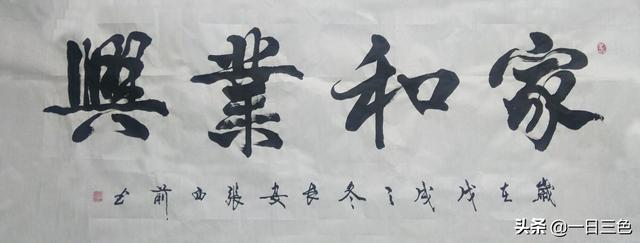 家和業興
歲在戊戌之冬長安張西前书
头条 @一日三色